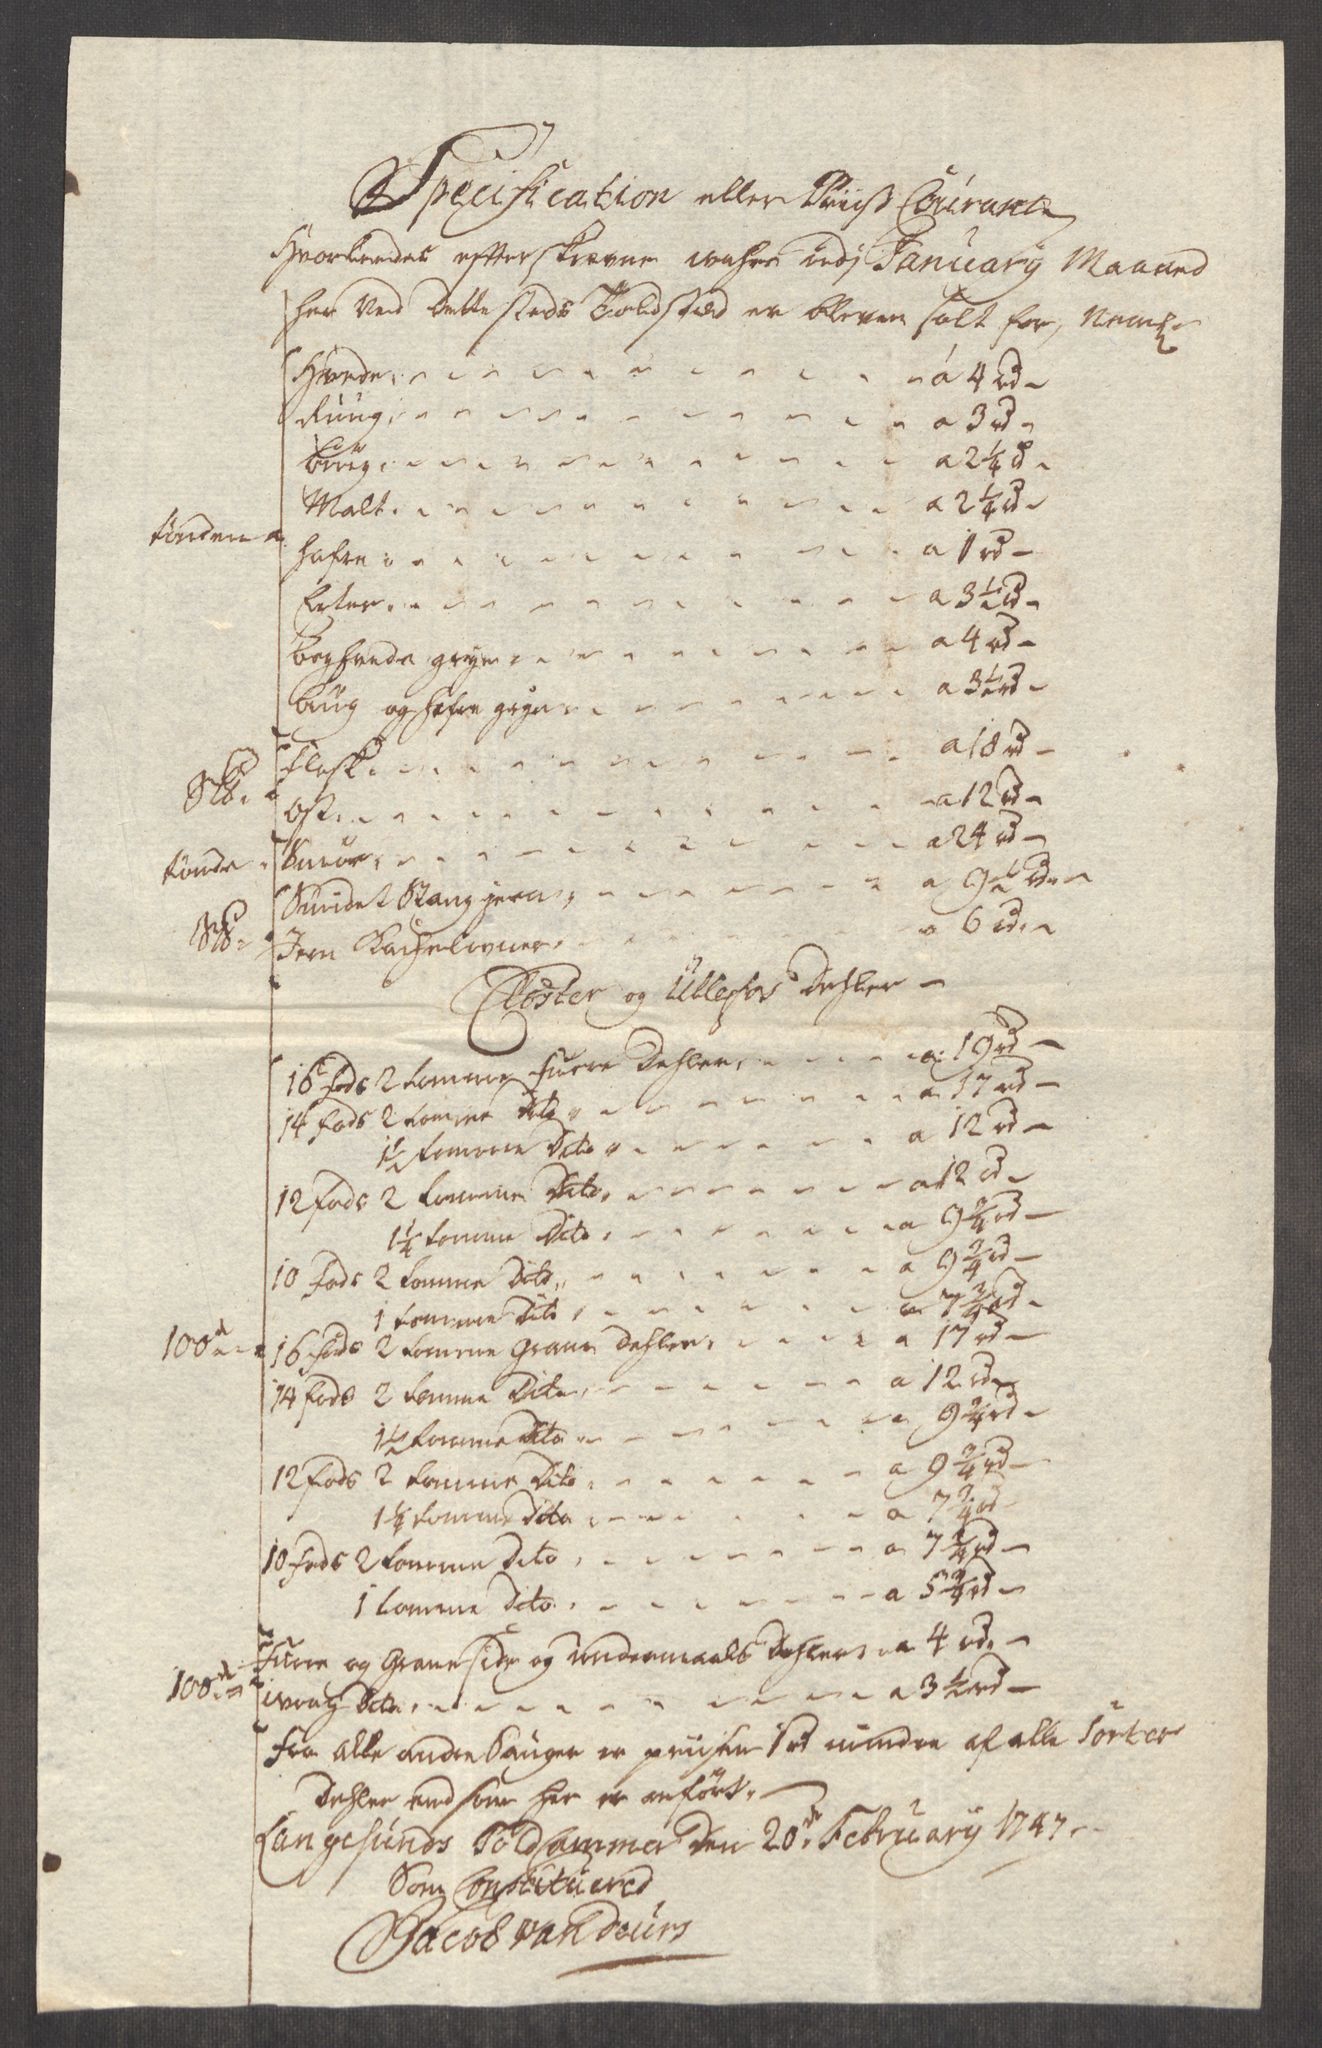 Specification eller Priiss Courante
Hvorledes efterskrevne wahre udj January Maaned
her ved dette steds Toldsted er bleven solt for, Neml:
Hvede á 4 rd
Rüüg a 3 rd
büüg a 2 1/4 rd
Malt a 2 1/4 rd
tönden
hafre a 1 rd
Erter a 3 1/2 rd
boghvede gryn a 4 rd
büüg og hafre gryn a 3 1/2 rd
flesk a 18 rd
Slb:
Ost a 12 rd
tönde Smör a 24 rd
Smidet Stang jern a 9 1/2 rd
Slb: Jern Kachelovner a 6 rd
Closter og Üllefos Dehler
16 fods 2 tomme furre Dehler a 19 rd
14 fods 2 tomme dito a 17 rd
1 1/2 tomme Dito a 12 rd
12 fods 2 tomme Dito a 12 rd
1 1/4 tomme Dito a 9 3/4 rd
10 fods 2 tomme Dito a 9 3/4 rd
1 tomme Dito a 7 3/4 rd
100d 16 fods 2 tomme Grane Dehler a 17 rd
14 fods 2 tomme Dito a 12 rd
1 1/2 tomme Dito a 9 3/4 rd
12 fods 2 tomme Dito a 9 3/4 rd
1 1/4 tomme Dito a 7 3/4 rd
10 fods 2 tomme Dito a 7 3/4 rd
1 tomme Dito a 5 3/4 rd
furre og Grane side og undermaals Dehler a 4 rd
100d wrag Dito a 3 1/2 rd
fra alle andre Sauger er prüsen 1 rd mindre af alle Sorter
Dehler end som her er anfört.
Langesunds Toldkammer den 20de February 1747
Som Constituered
Jacob van Deürs